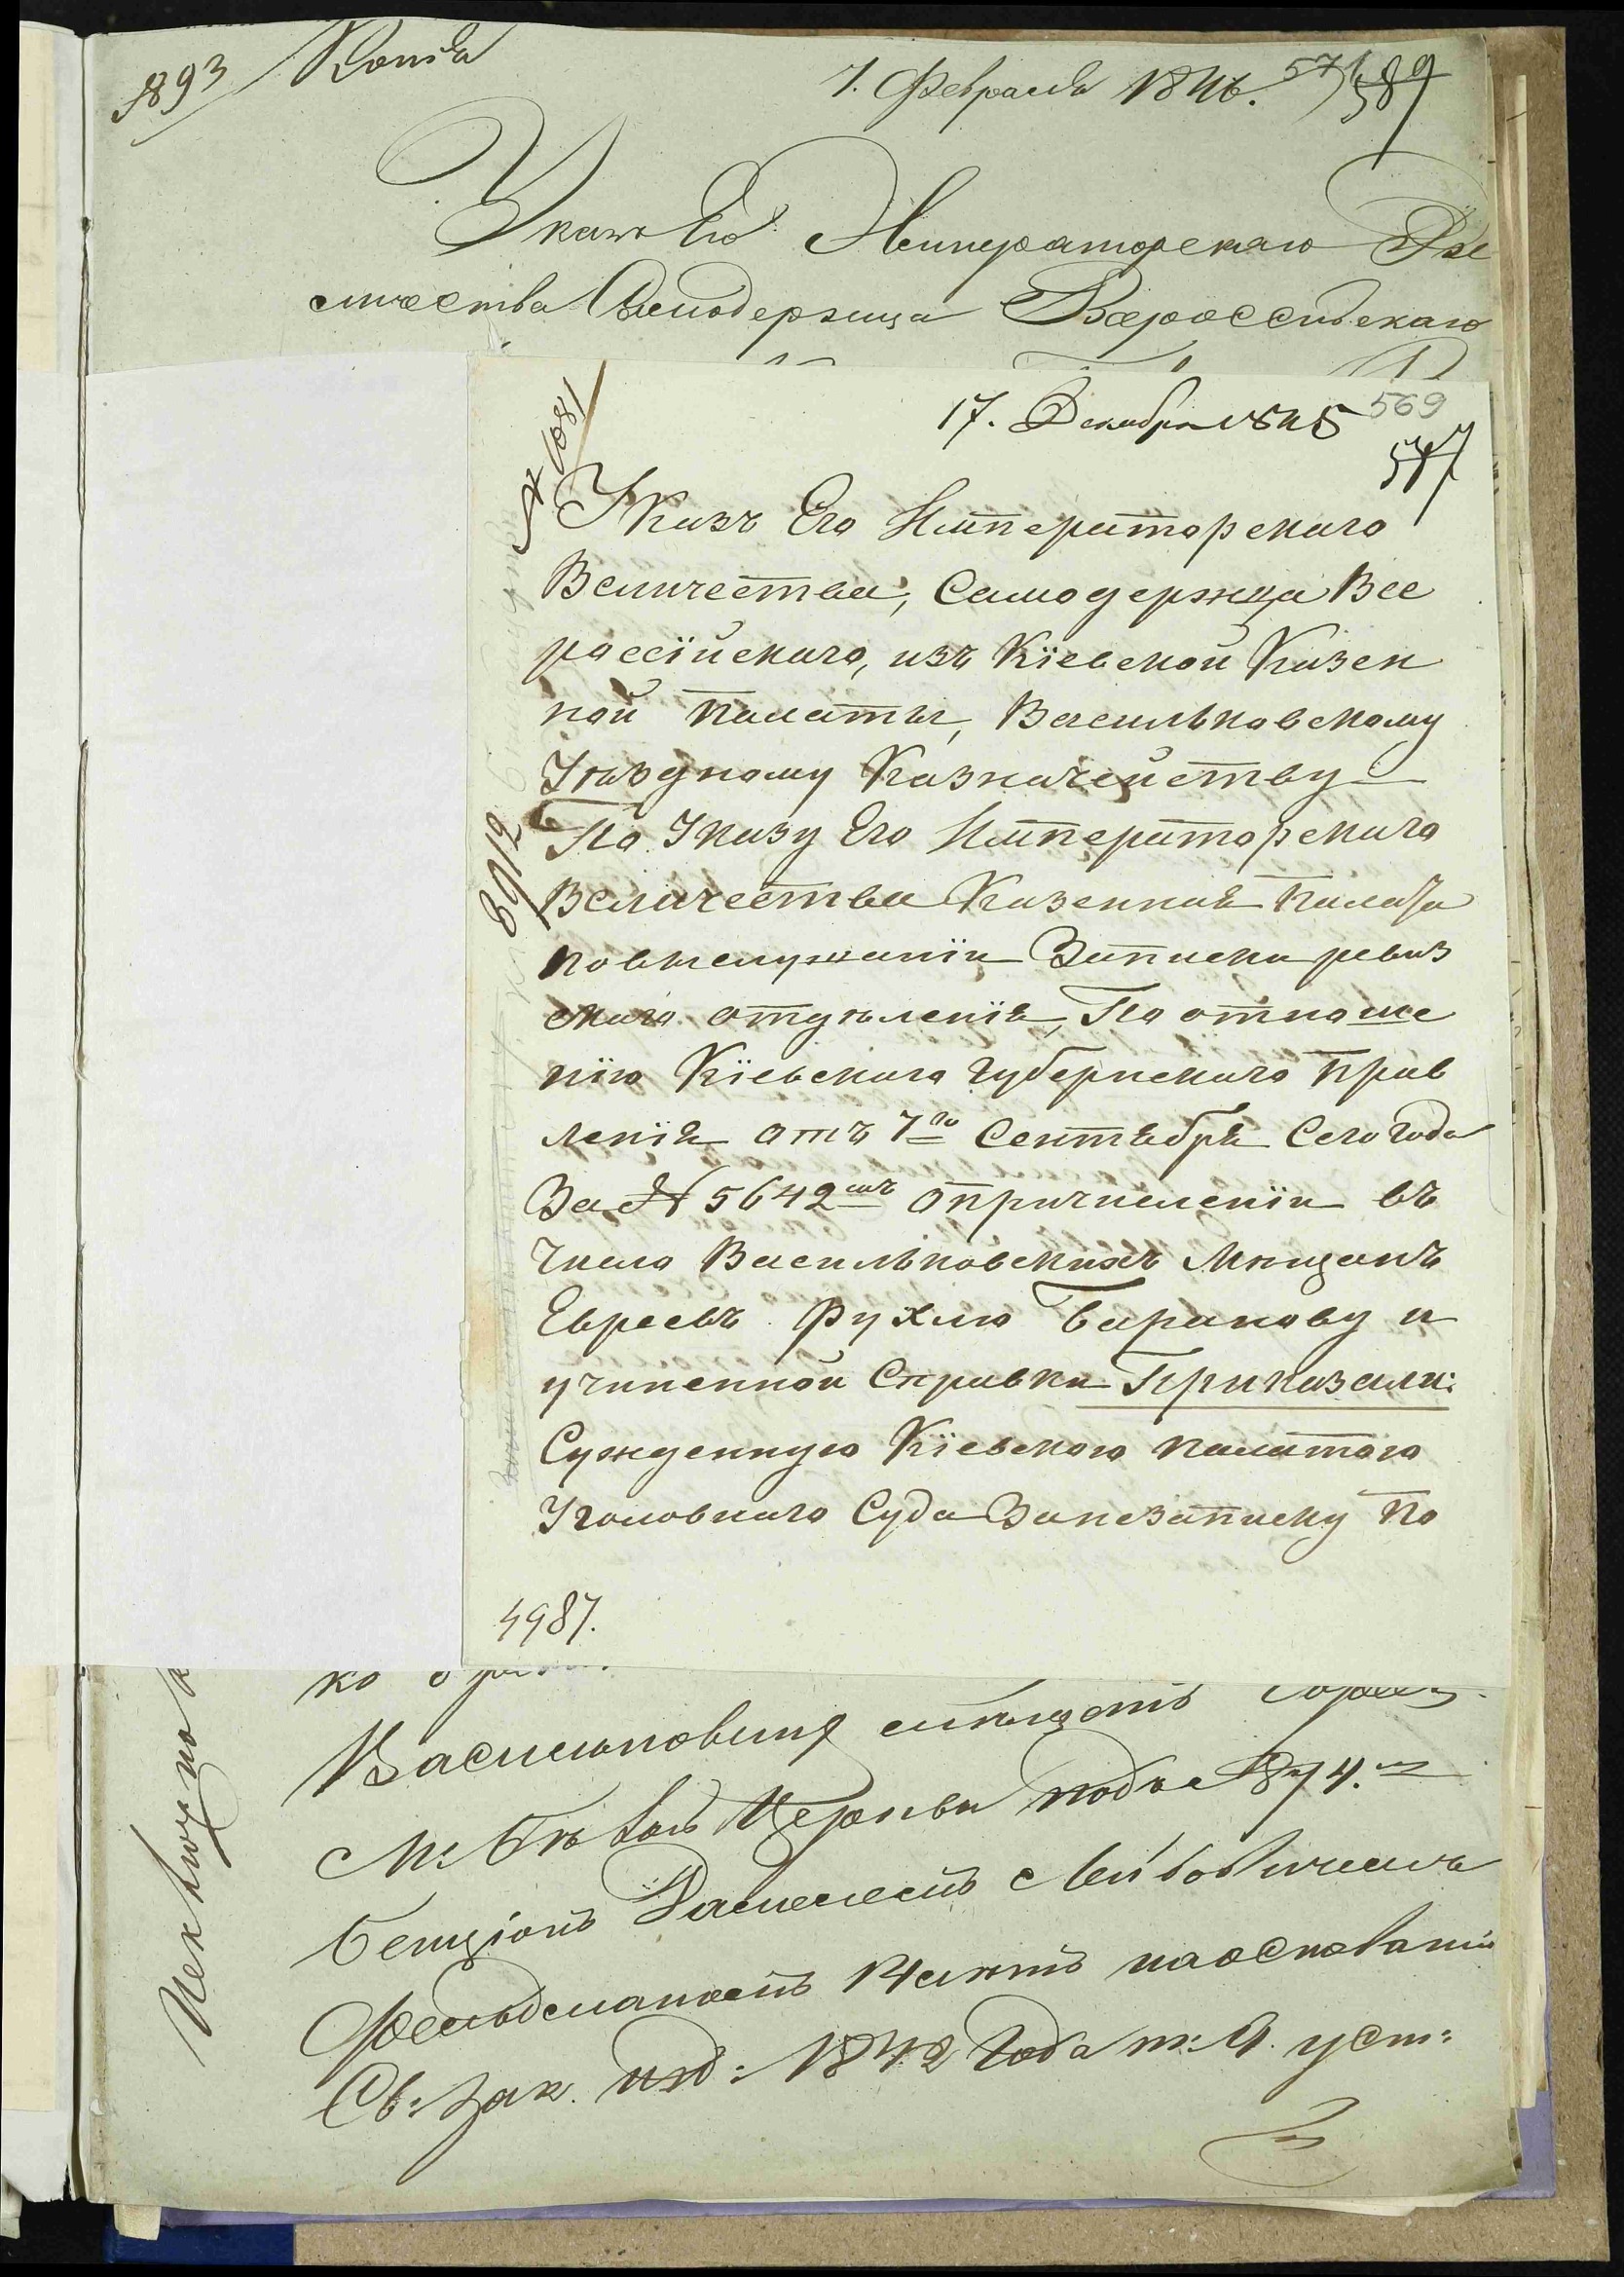 1893
Копія
7. Февраля 1846. 571 589
Указъ Его Императорскаго Ве
личества Самодержца Всероссійскаго
17. Декабря 1845 569
577
№ 1801
Указъ Его Императорскаго
Величества, Самодержца Все
россійскаго, изъ Кіевской Казен
ной палаты, Васильковскому
Уѣздному Казначейству
По Указу Его Императорскаго
Величества Казенная палата
по выслушаніи Записки ревиз
скаго отдѣленія, По отноше
нію Кіевскаго Губернскаго Прав
ленія отъ 7го Сентября Сего Года
За № 5642мъ опричисленіи въ
Число Васильковскихъ Мѣщанъ
Евреевъ Рухлю Баранову и
учиненной Справки Приказали:
Сужденную Кіевскою палатою
Уголовнаго Суда Занезаписку по
4987.
ко
Васильковѣ мѣщанъ
м: Бѣлой Церкви подъ № 874.
Бенціонъ Лейбовичемъ
Фельдманомъ на основаніи
Св: зак. изд: 1842 Года т: 9. уст: